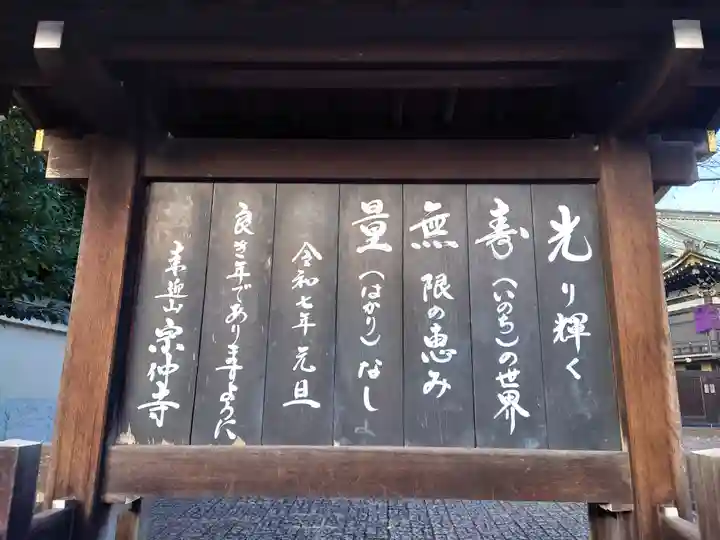 光り輝く
寿(いのち)の世界
無限の恵み
量(はかり)なし
令和七年 元旦
良き年でありますように
来迎山 宗仲寺